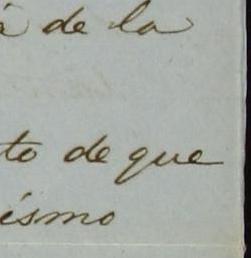 á de la
to de que
ismo